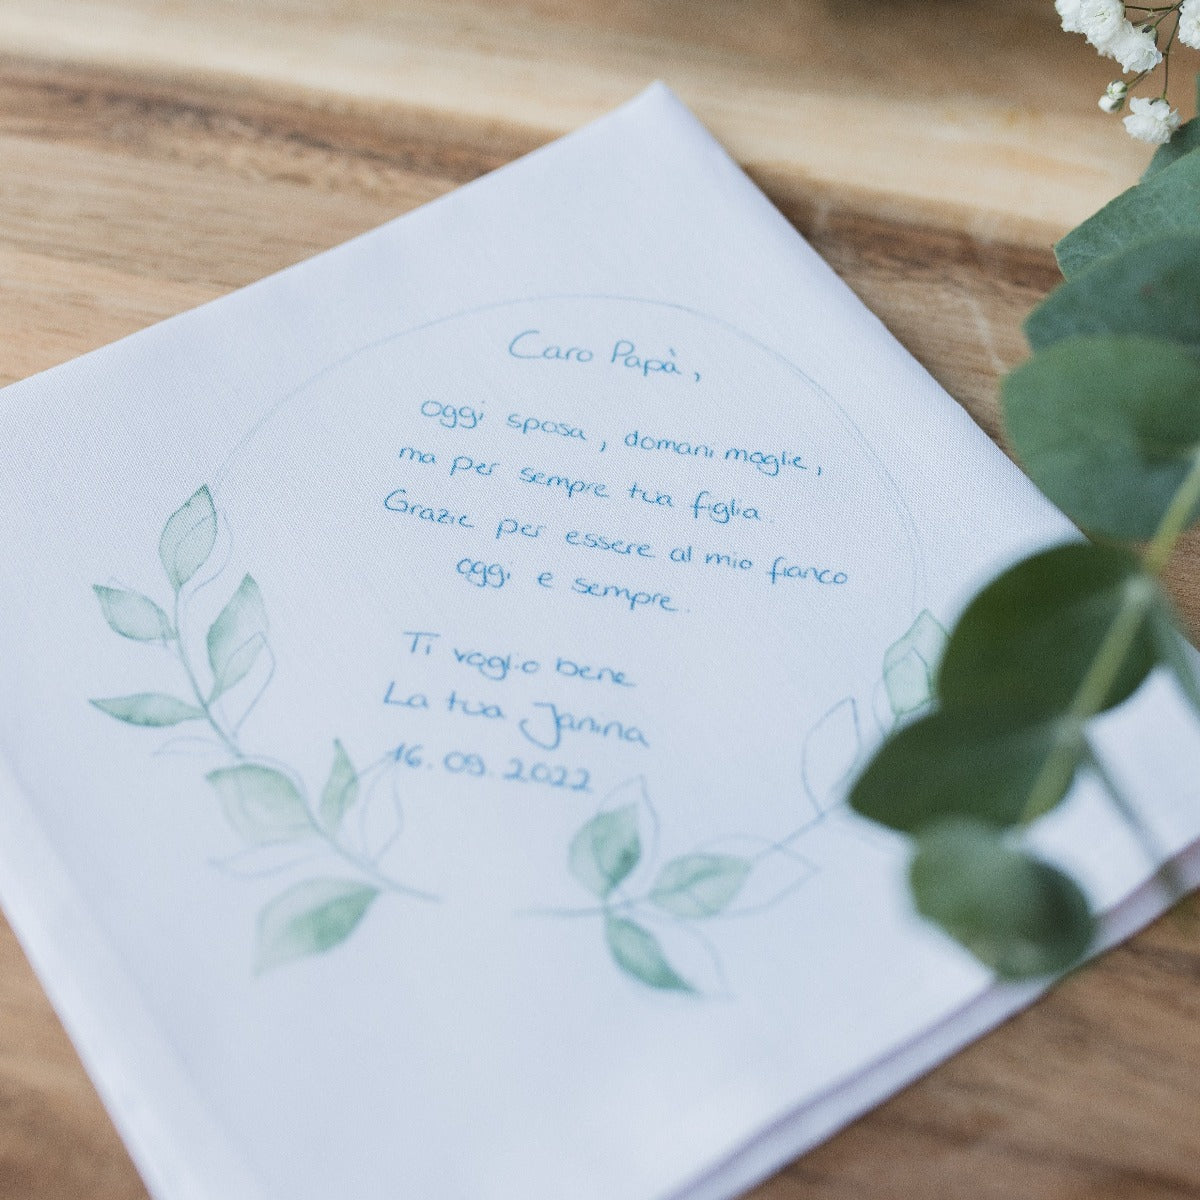 Caro Papà,
oggi sposa, domani moglie,
ma per sempre tua figlia.
Grazie per essere al mio fianco
oggi e sempre.
Ti voglio bene
La tua Janina
16.09.2022